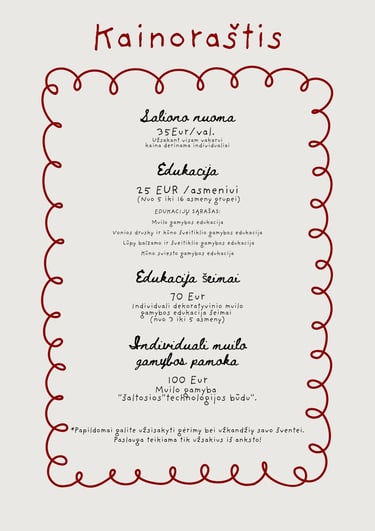 Kainoraštis
Saliono nuoma
35Eur/val.
Užsakant visam vakarui
kaina derinama individualiai
Edukacija
25 EUR /asmeniui
(Nuo 5 iki 16 asmenų grupei)
EDUKACIJŲ SĄRAŠAS:
Muilo gamybos edukacija
Vonios druskų ir kūno šveitiklio gamybos edukacija
Lūpų balzamo ir šveitiklio gamybos edukacija
Kūno sviesto gamybos edukacija
Edukacija šeimai
70 Eur
Individuali dekoratyvinio muilo
gamybos edukacija šeimai
(nuo 3 iki 5 asmenų)
Individuali muilo
gamybos pamoka
100 Eur
Muilo gamyba
"šaltosios"technologijos būdu".
*Papildomai galite užsisakyti gėrimų bei užkandžių savo šventei.
Paslauga teikiama tik užsakius iš anksto!